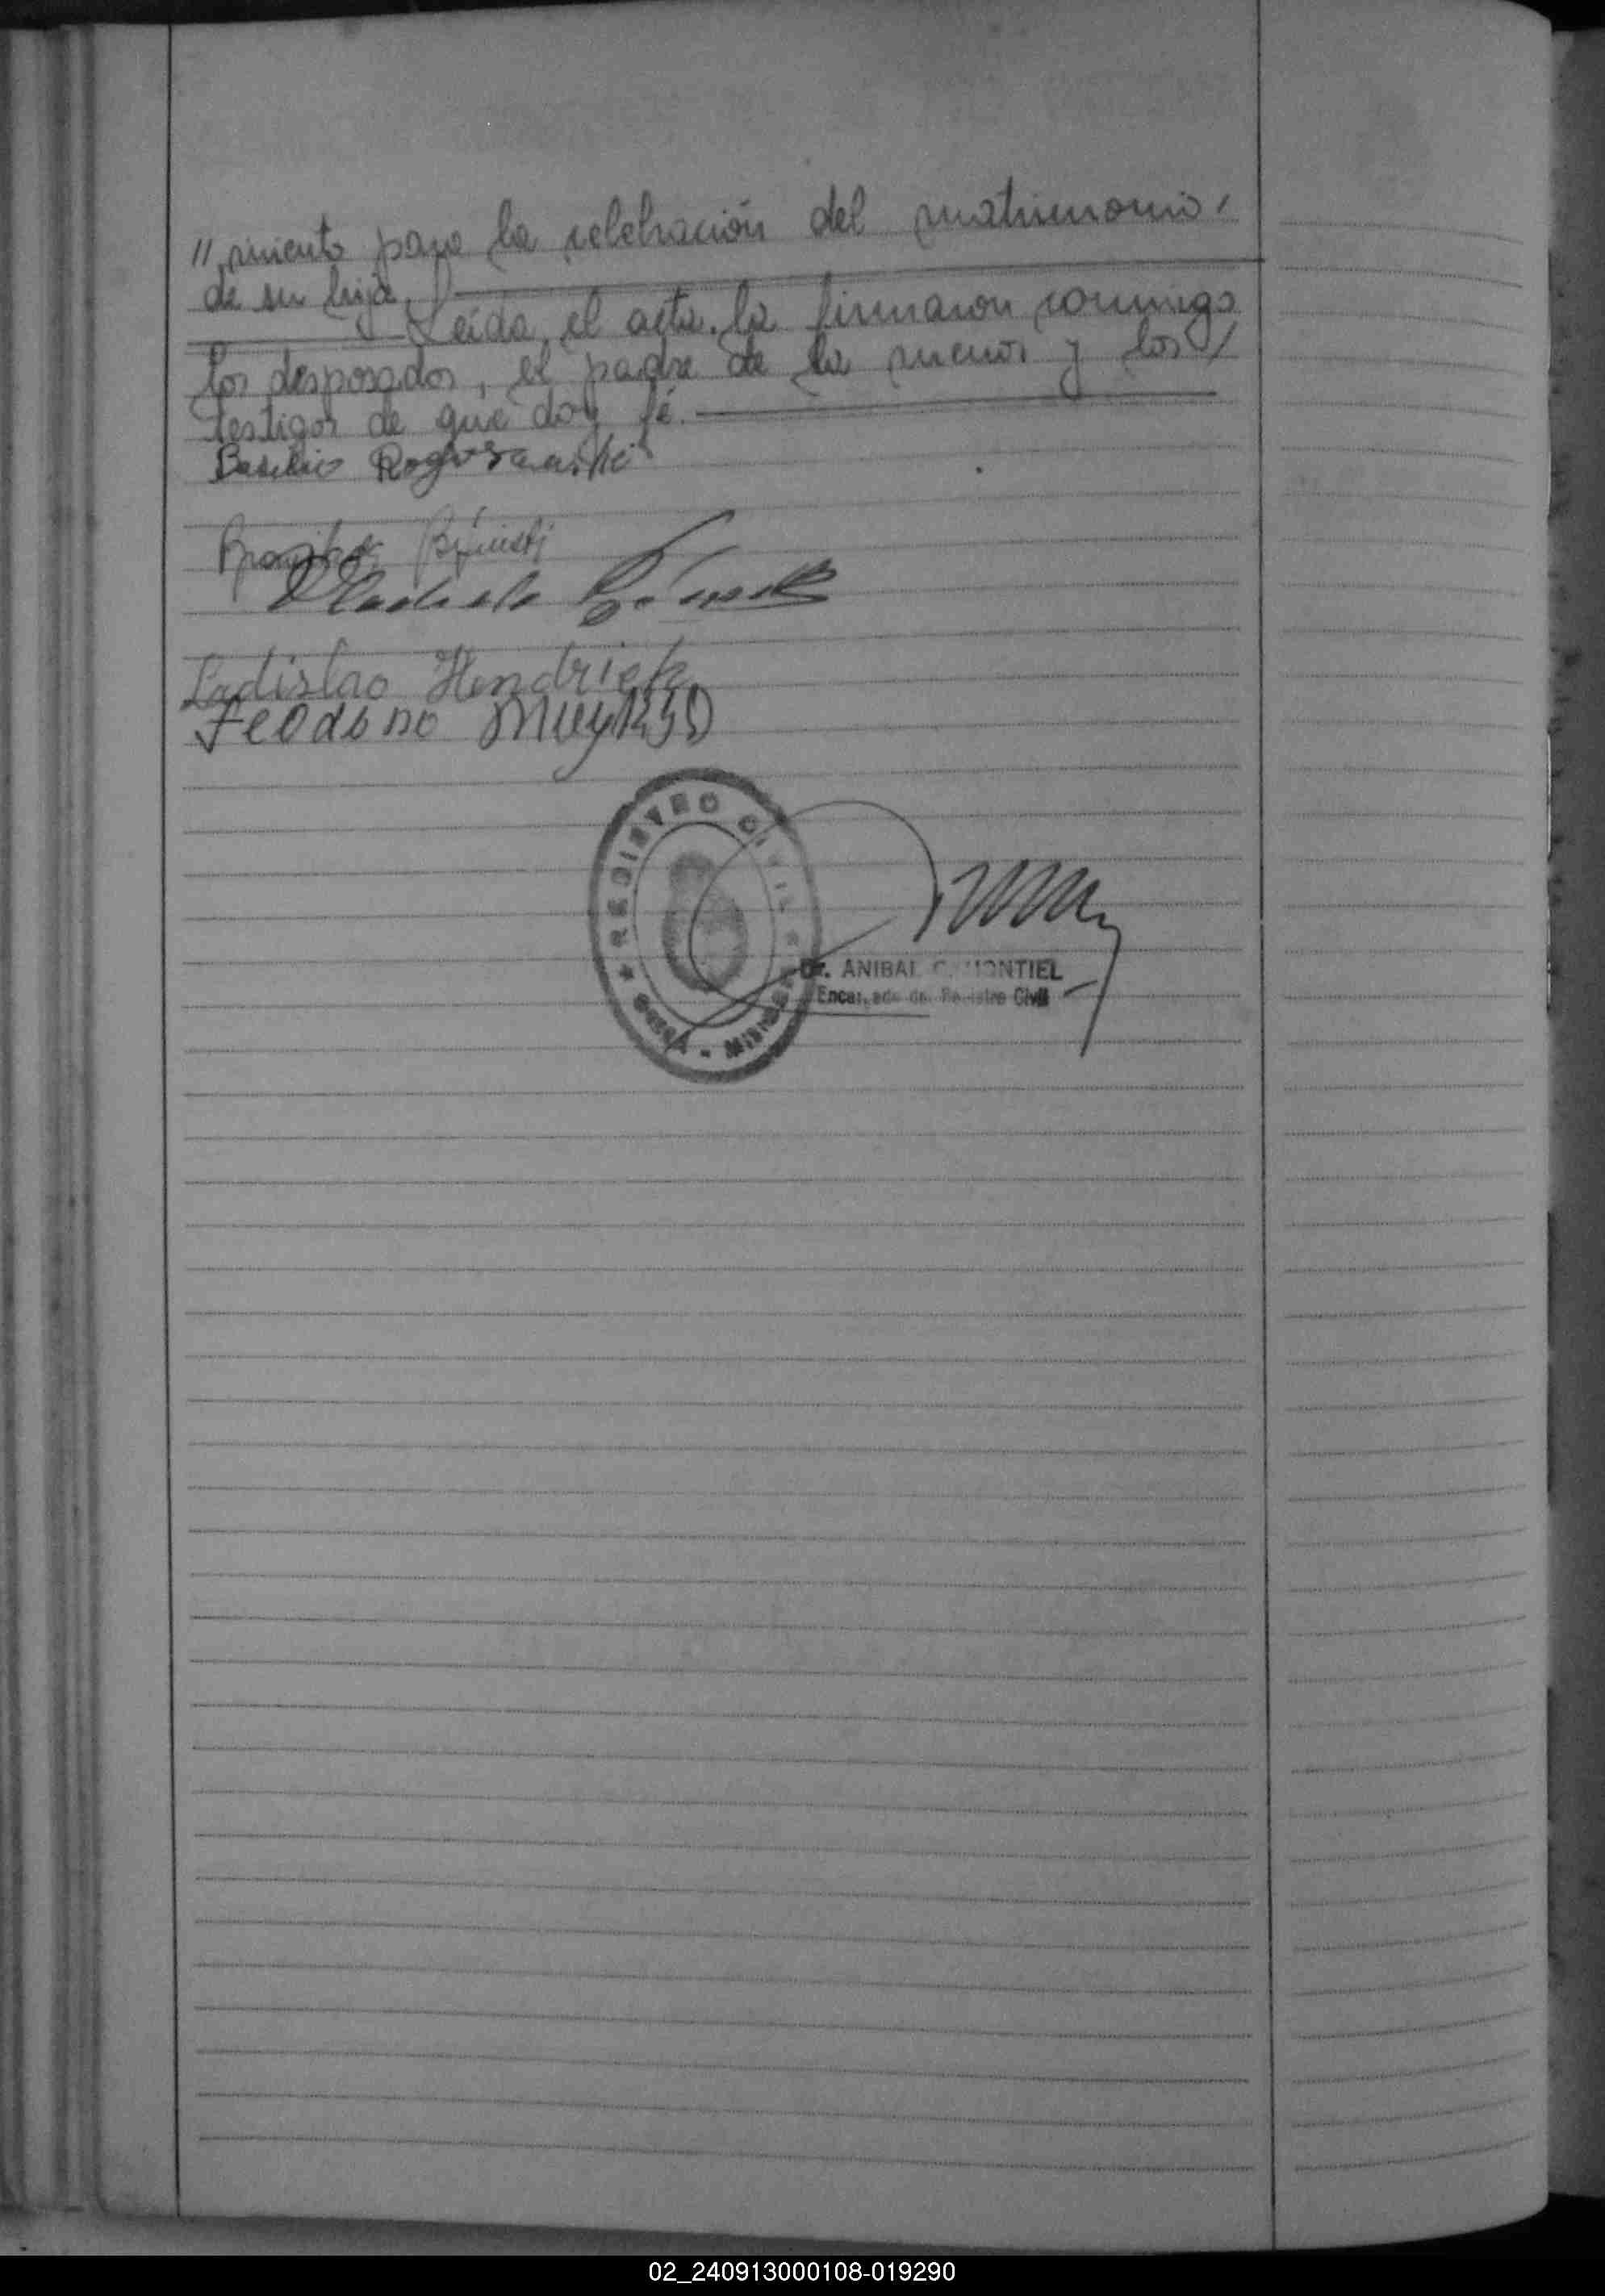 // miento para la celebración del matrimonio,
de su hija.
Leída el acta, la firmaron conmigo
los desposados, el padre de la menor y los /
testigos de que doy fé.
Basilio
Ladislao Hendriek
Teodoro
REGISTRO CIVIL
Dr. ANIBAL C. MONTIEL
Encargado del Registro Civil
02_240913000108-019290